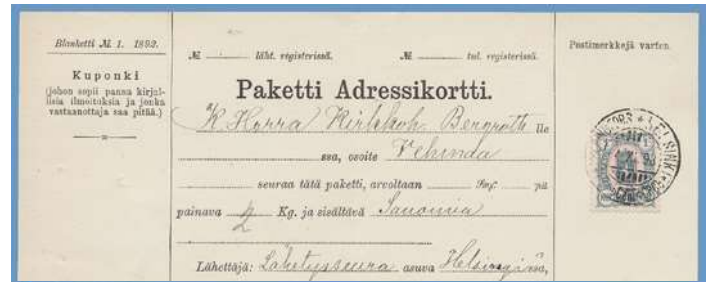 Blanketti №. 1. 1892.
Kuponki
(johon sopii panna kirjal-
lisia ilmoituksia ja jonka
vastaanottaja saa pitää.)
№. läht. registerissä. №. tul. registerissä.
Paketti Adressikortti.
Herra Kirkkoh. Bergroth lle
ssa, osoite Vehmda
seuraa tätä paketti, arvoltaan Smf. pii
painava 2 Kg. ja sisältävä Sanomia
Lähettäjä: Lähetysseura asuva Helsingissä,
Postimerkkejä varten.
HELSINKI